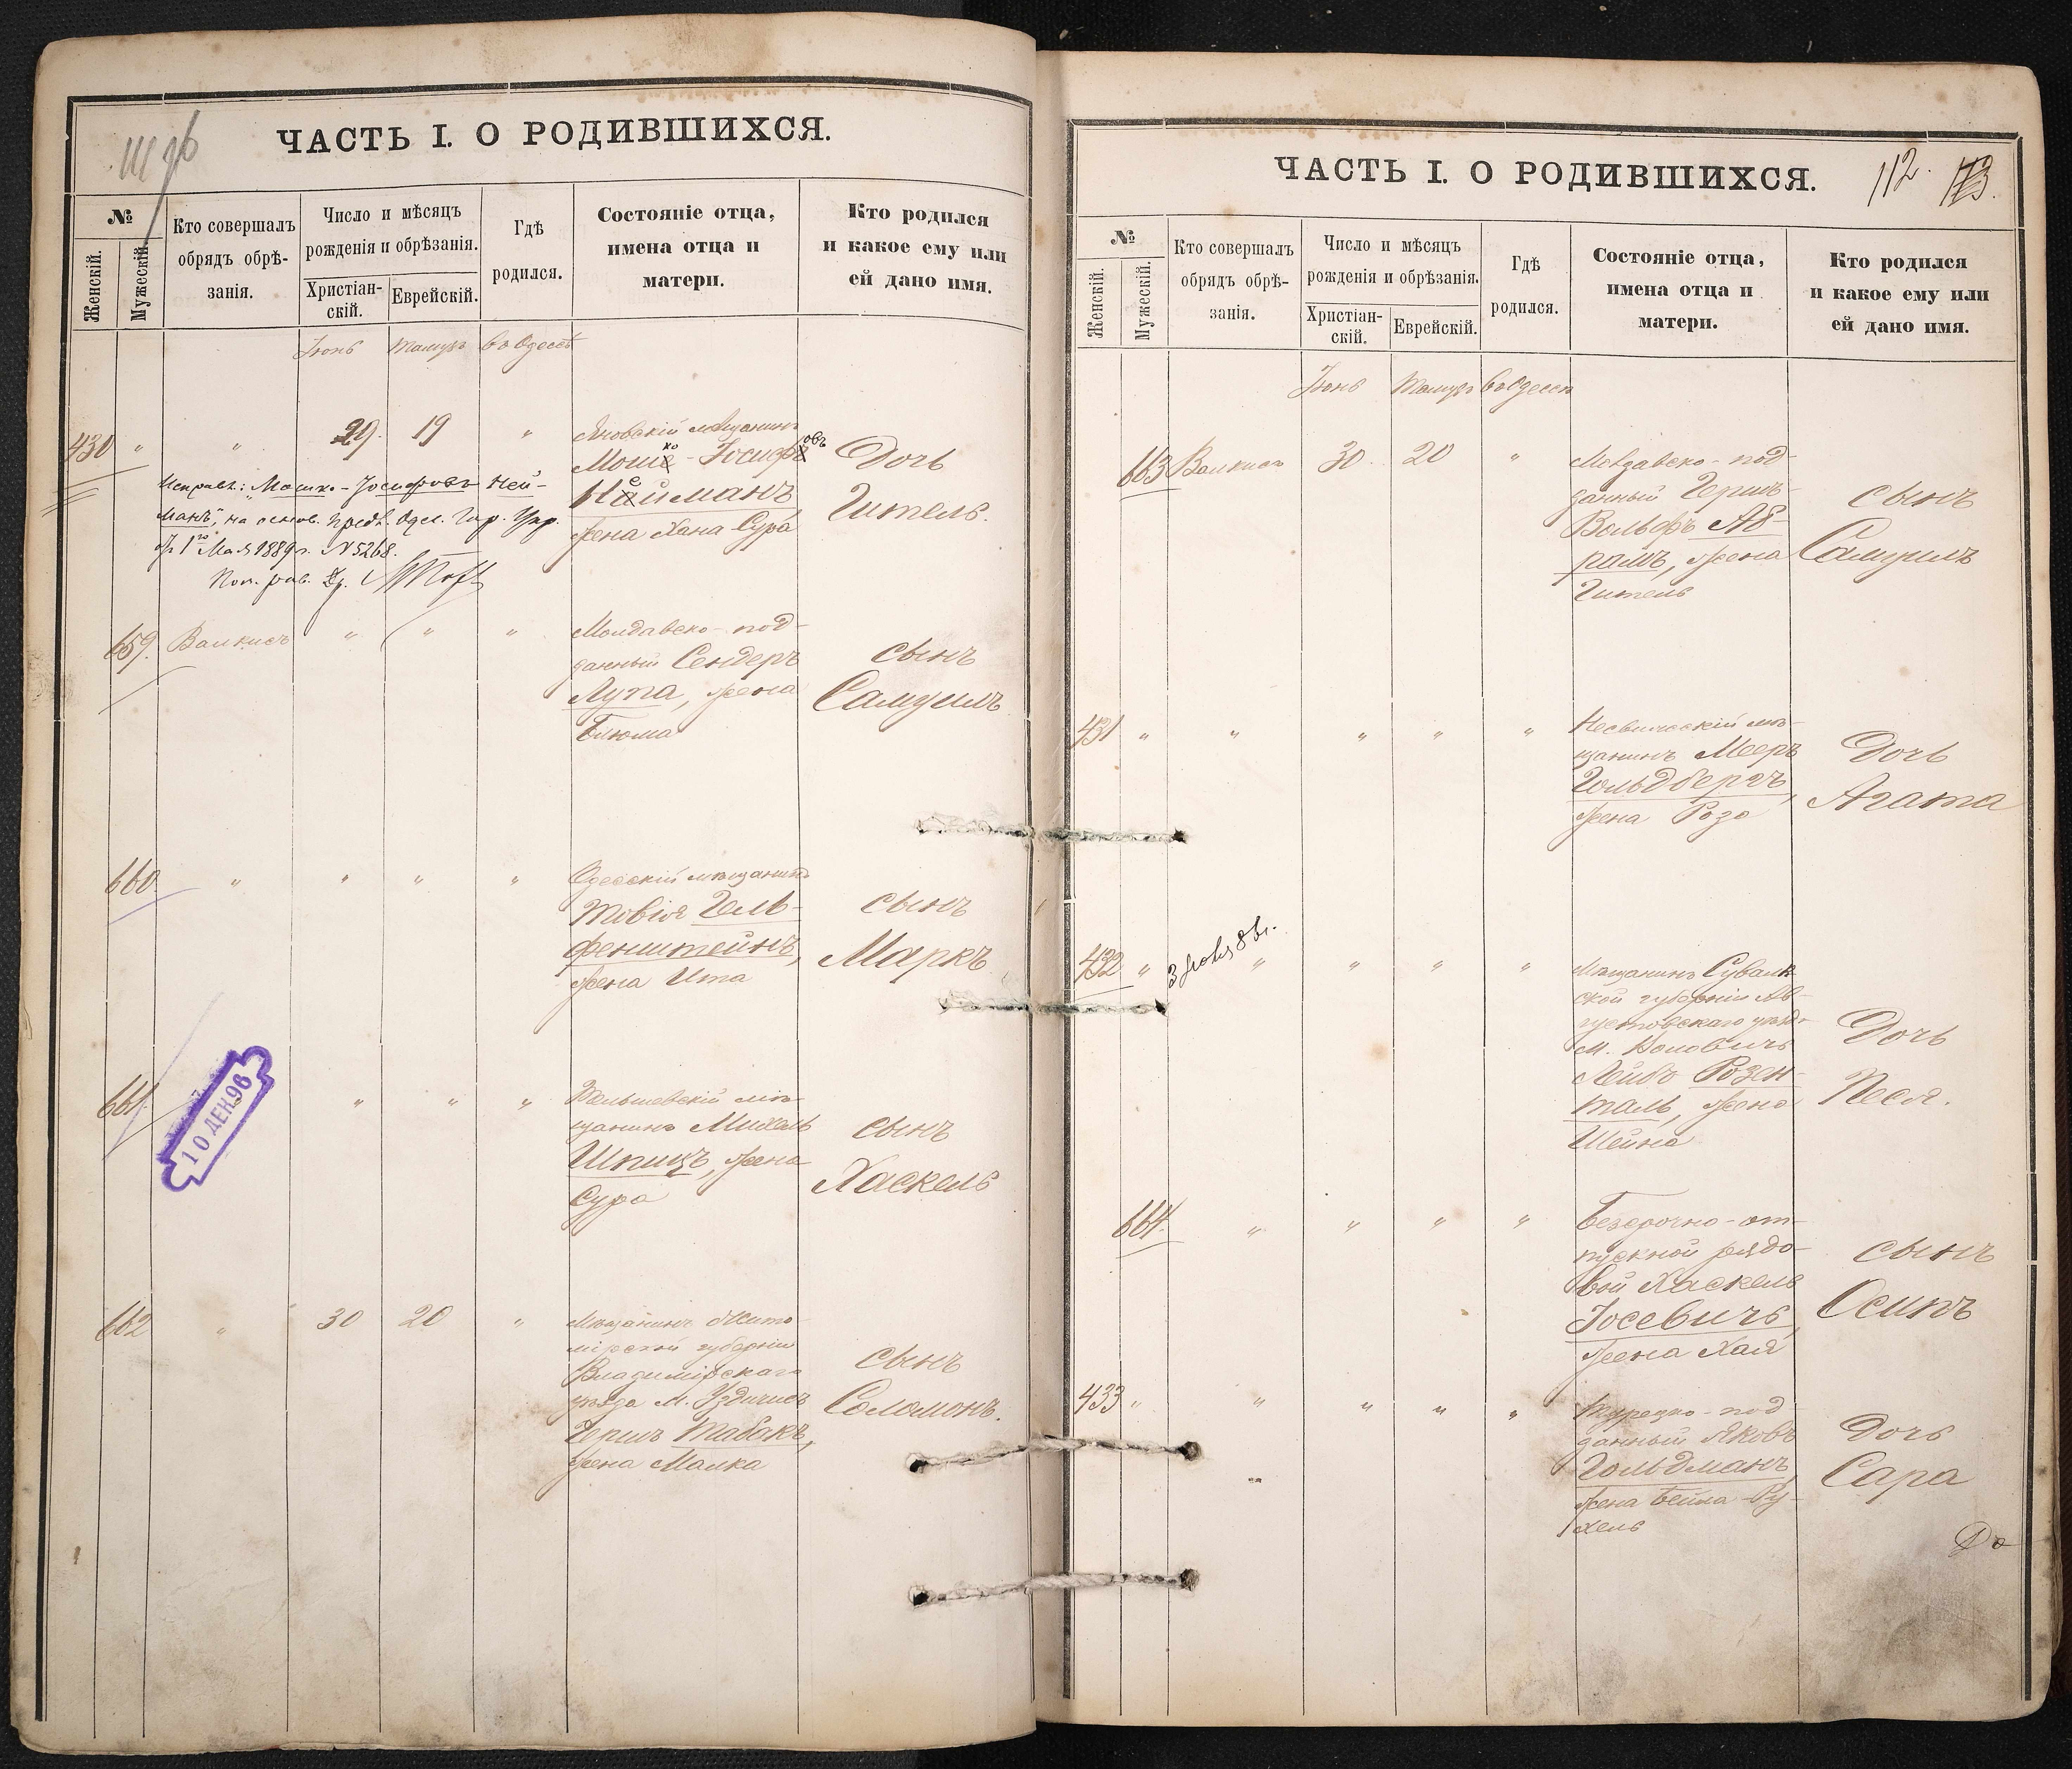 ЧАСТЬ I. О РОДИВШИХСЯ.
№
Женскій.
Мужескій.
Кто совершалъ
обрядъ обрѣ-
занія.
Число и мѣсяцъ
рожденія и обрѣзанія.
Христіан-
скій.
Еврейскій.
Гдѣ
родился.
Состояніе отца,
имена отца и
матери.
Кто родился
и какое ему или
ей дано имя.
Іюнь Тамузъ въ Одессѣ
430 " " 29. 19 "
Яновскій мѣщанинъ
Мошко - Іосифовъ
Нейманъ
жена Хана Сура
Дочь
Гитель.
Исправл: "Мошко-Іосифовъ Ней-
манъ", на основ. предл. Одес. Гор. Упр.
1го Мая 1889 г. № 5268.
659. Валкисъ " " "
Молдавско-под-
данный Сендеръ
Лупа, жена
Блюма
сынъ
Самуилъ
660 " " " "
Одесскій мѣщанинъ
Товія Гель-
фенштейнъ,
жена Ита
сынъ
Маркъ
661. " " "
10 ДЕК 96
мѣ-
щанинъ Михель
Шпицъ, жена
Сура
сынъ
Хаскель
662 " 30 20 "
Мѣщанинъ Жито-
мірской губерніи
Владимірскаго
уѣзда м.
Гершъ Табакъ,
жена Малка
сынъ
Соломонъ.
ЧАСТЬ I. О РОДИВШИХСЯ.
112.
113.
№
Женскій.
Мужескій.
Кто совершалъ
обрядъ обрѣ-
занія.
Число и мѣсяцъ
рожденія и обрѣзанія.
Христіан-
скій.
Еврейскій.
Гдѣ
родился.
Состояніе отца,
имена отца и
матери.
Кто родился
и какое ему или
ей дано имя.
Іюнь Тамузъ въ Одессѣ
663 Валкисъ 30. 20 "
Молдавско-под-
данный Гершъ-
Вольфъ Аб-
рамъ, жена
Гитель
сынъ
Самуилъ
431 " " " " "
Несвижскій мѣ-
щанинъ Мееръ
Гольдбергъ,
жена Роза
Дочь
Агата
432 " " " " "
Мѣщанинъ Сувалк-
ской губерніи Ав-
густовскаго уѣзда
м.
Лейба Розен-
таль, жена
Шейна
Дочь
Песя.
664. " " " "
Безсрочно-от-
пускной рядо-
вой Хаскель
Іосевичъ,
жена Хая
сынъ
Осипъ
433 " " " " "
Турецко-под-
данный Яковъ
Гольдманъ,
жена Бейла-Ру-
хель
Дочь
Сара